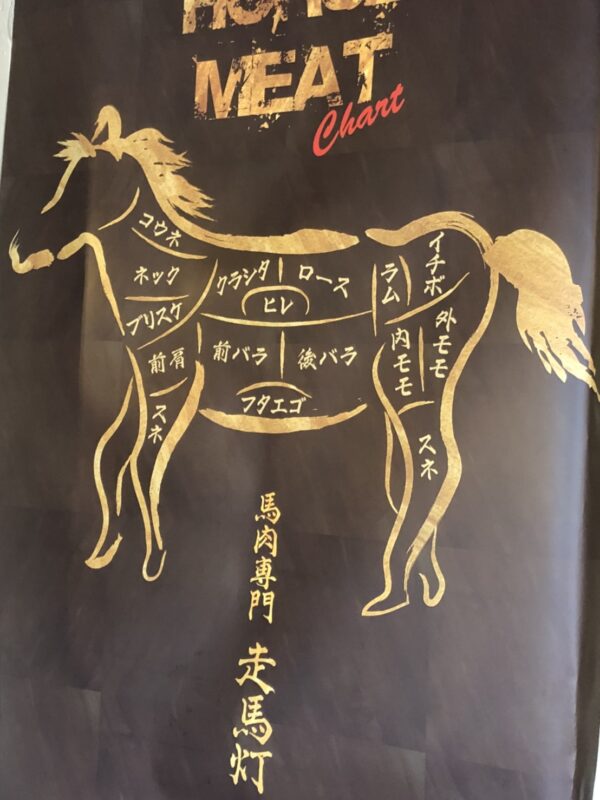 HORSE
MEAT
Chart
コウネ
ネック
ブリスケ
前肩
スネ
クラシタ
ロース
ヒレ
前バラ
後バラ
フタエゴ
ラム
イチボ
内モモ
外モモ
スネ
馬肉専門
走馬灯